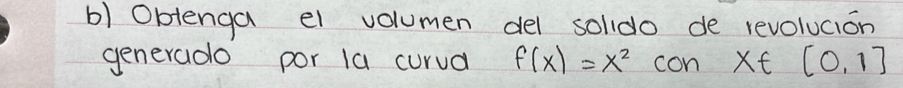 b) Obtenga el volumen del solido de revolución
generado por la curva f(x) = x² con x∈ [0,1]